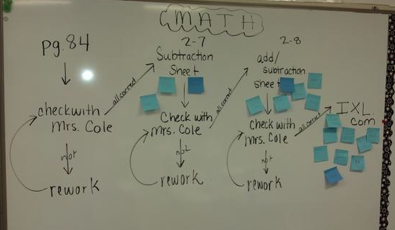 MATH
pg. 84
check with
Mrs. Cole
not
rework
all correct
2-7
Subtraction
Sheet
Check with
Mrs. Cole
not
rework
all correct
2-8
add/
subtraction
sheet
Check with
Mrs. Cole
not
rework
all correct
IXL
com